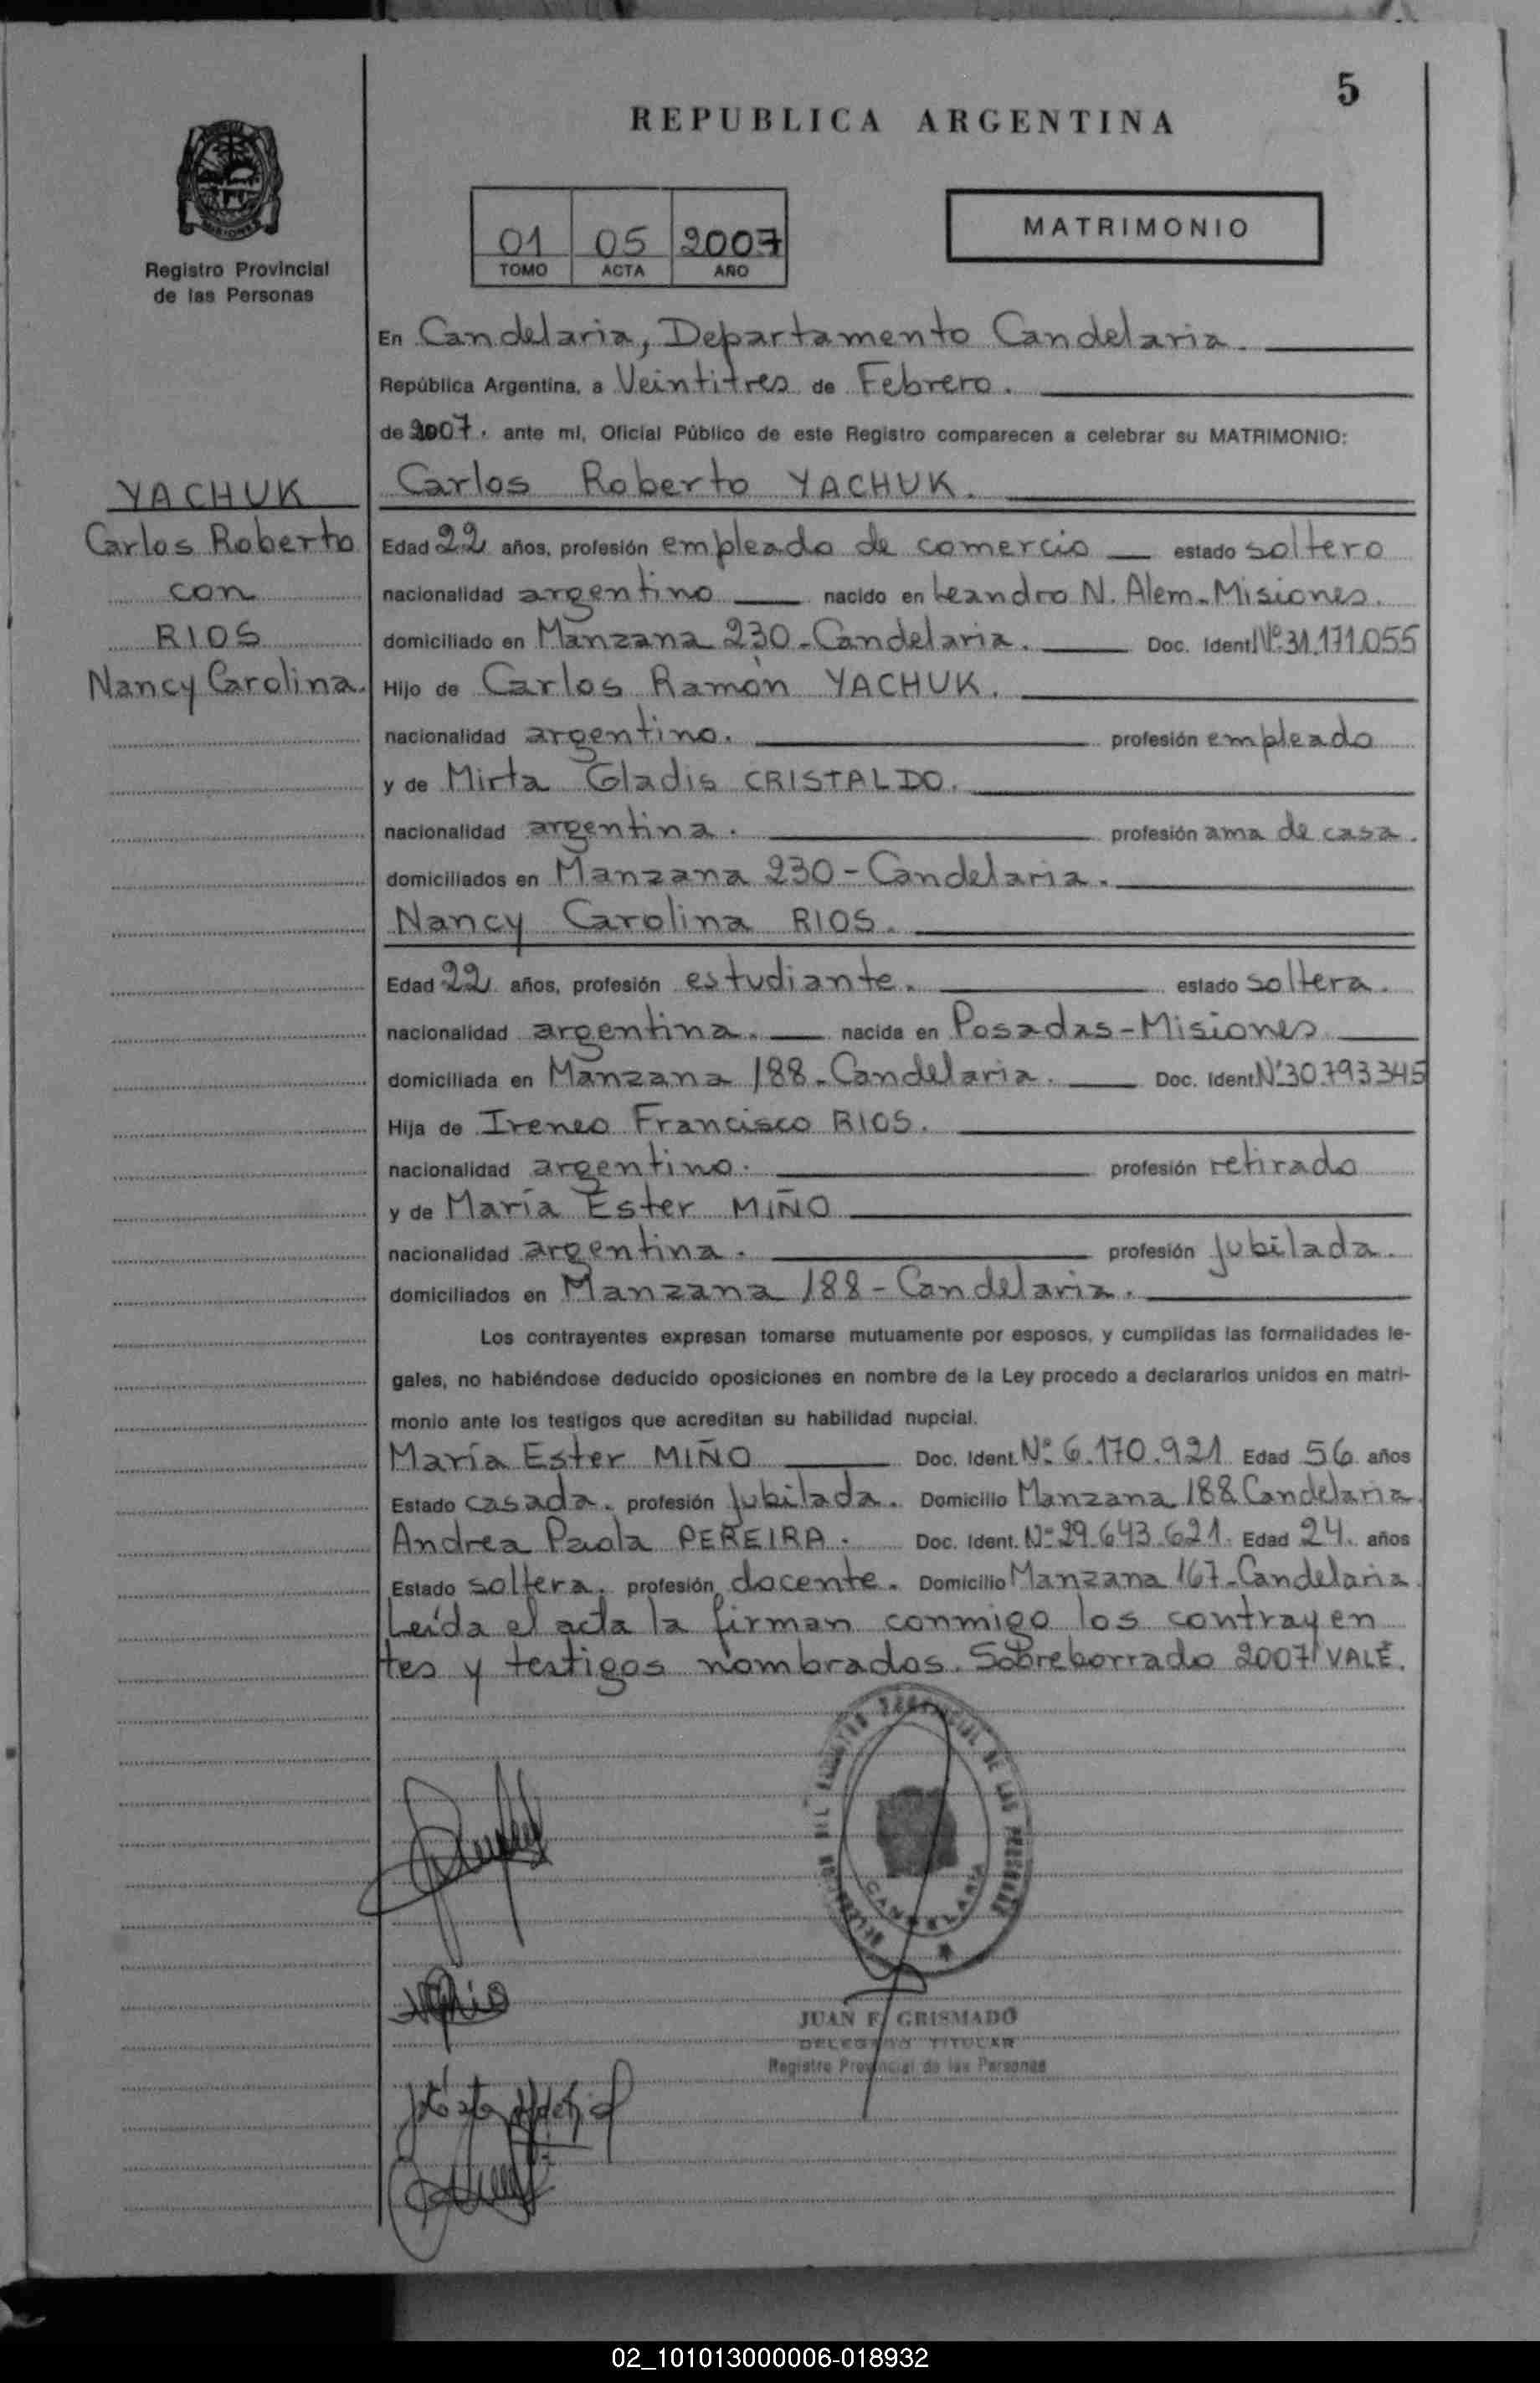 5
REPUBLICA ARGENTINA
MISIONES
Registro Provincial
de las Personas
01 05 2007
TOMO ACTA AÑO
MATRIMONIO
En Candelaria, Departamento Candelaria.
República Argentina, a Veintitres de Febrero.
de 2007. ante mí, Oficial Público de este Registro comparecen a celebrar su MATRIMONIO:
YACHUK
Carlos Roberto
con
RIOS
Nancy Carolina.
Carlos Roberto YACHUK.
Edad 22 años, profesión empleado de comercio estado soltero
nacionalidad argentino nacido en Leandro N. Alem-Misiones.
domiciliado en Manzana 230-Candelaria. Doc. Ident. Nº 31.171.055
Hijo de Carlos Ramón YACHUK.
nacionalidad argentino. profesión empleado
y de Mirta Gladis CRISTALDO.
nacionalidad argentina. profesión ama de casa.
domiciliados en Manzana 230-Candelaria.
Nancy Carolina RIOS.
Edad 22 años, profesión estudiante. estado soltera.
nacionalidad argentina. nacida en Posadas-Misiones
domiciliada en Manzana 188-Candelaria. Doc. Ident. Nº 30.793.345
Hija de Ireneo Francisco RIOS.
nacionalidad argentino. profesión retirado
y de María Ester MIÑO
nacionalidad argentina. profesión jubilada.
domiciliados en Manzana 188-Candelaria.
Los contrayentes expresan tomarse mutuamente por esposos, y cumplidas las formalidades le-
gales, no habiéndose deducido oposiciones en nombre de la Ley procedo a declararlos unidos en matri-
monio ante los testigos que acreditan su habilidad nupcial.
María Ester MIÑO Doc. Ident. Nº 6.170.921 Edad 56 años
Estado casada. profesión jubilada. Domicilio Manzana 188 Candelaria.
Andrea Paola PEREIRA. Doc. Ident. Nº 29.643.621. Edad 24. años
Estado soltera. profesión docente. Domicilio Manzana 167-Candelaria.
Leída el acta la firman conmigo los contrayen
tes y testigos nombrados. Sobreborrado 2007 VALE.
REGISTRO PROVINCIAL DE LAS PERSONAS
CANDELARIA
JUAN F. GRISMADO
DELEGADO TITULAR
Registro Provincial de las Personas
02_101013000006-018932